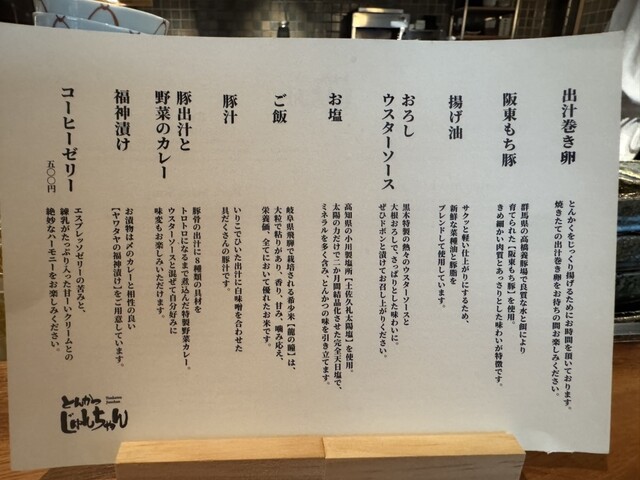 出汁巻き卵
とんかつをじっくり揚げるためにお時間を頂いております。
焼きたての出汁巻き卵をお待ちの間お楽しみください。
阪東もち豚
群馬県の高橋養豚場で良質な水と飼により
育てられた【阪東もち豚】を使用。
きめ細かい肉質とあっさりとした味わいが特徴です。
揚げ油
サクッと軽い仕上がりにするため、
新鮮な菜種油と豚脂を
ブレンドして使用しています。
おろし
ウスターソース
黒木特製の熱々のウスターソースと
大根おろしで、さっぱりとした味わいに。
ぜひドボンと漬けてお召し上がりください。
お塩
高知県の小川製塩所【土佐久礼太陽塩】を使用。
太陽の力だけで二か月間結晶化させた完全天日塩で、
ミネラルを多く含み、とんかつの味を引き立てます。
ご飯
岐阜県飛騨で栽培される希少米【龍の瞳】は、
大粒で粘りがあり、香り、甘み、噛み応え、
栄養価、全てにおいて優れたお米です。
豚汁
いりこでひいた出汁に白味噌を合わせた
具だくさんの豚汁です。
豚出汁と
野菜のカレー
豚骨の出汁に8種類の具材を
トロトロになるまで煮込んだ特製野菜カレー。
ウスターソースと混ぜて自分好みに
味変もお楽しみいただけます。
福神漬け
お漬物は〆のカレーと相性の良い
【ヤワタヤの福神漬け】をご用意しています。
コーヒーゼリー
五〇〇円
エスプレッソゼリーの苦みと、
練乳がたっぷり入った甘ーいクリームとの
絶妙なハーモニーをお楽しみください。
とんかつ
じゅんちゃん
Tonkatsu
Junchan